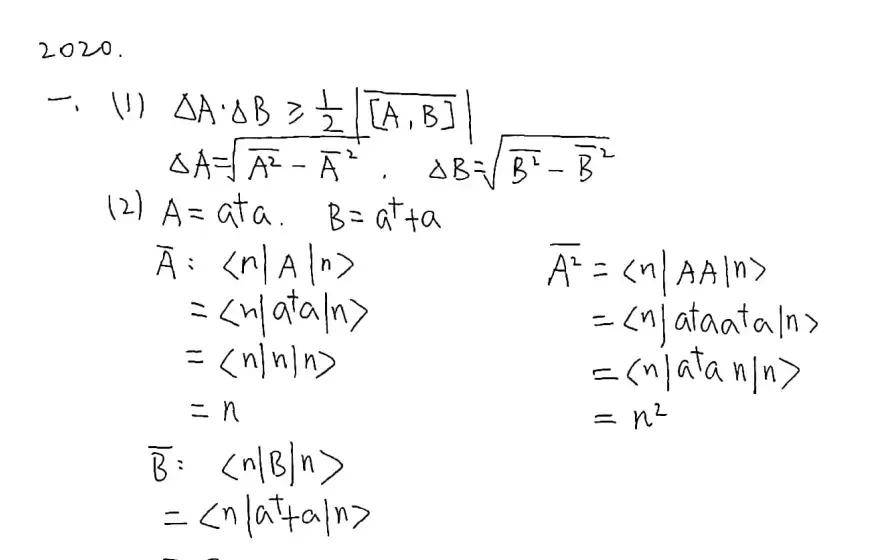 2020.
一. (1) ΔA·ΔB ≥ 1/2 |\overline{[A,B]}|
ΔA=√(\overline{A²} - \overline{A}²) . ΔB=√(\overline{B²} - \overline{B}²)
(2) A = a†a. B = a†+a
\overline{A} : <n|A|n>
= <n|a†a|n>
= <n|n|n>
= n
\overline{A²} = <n|AA|n>
= <n|a†aa†a|n>
= <n|a†a n|n>
= n²
\overline{B} : <n|B|n>
= <n|a†+a|n>